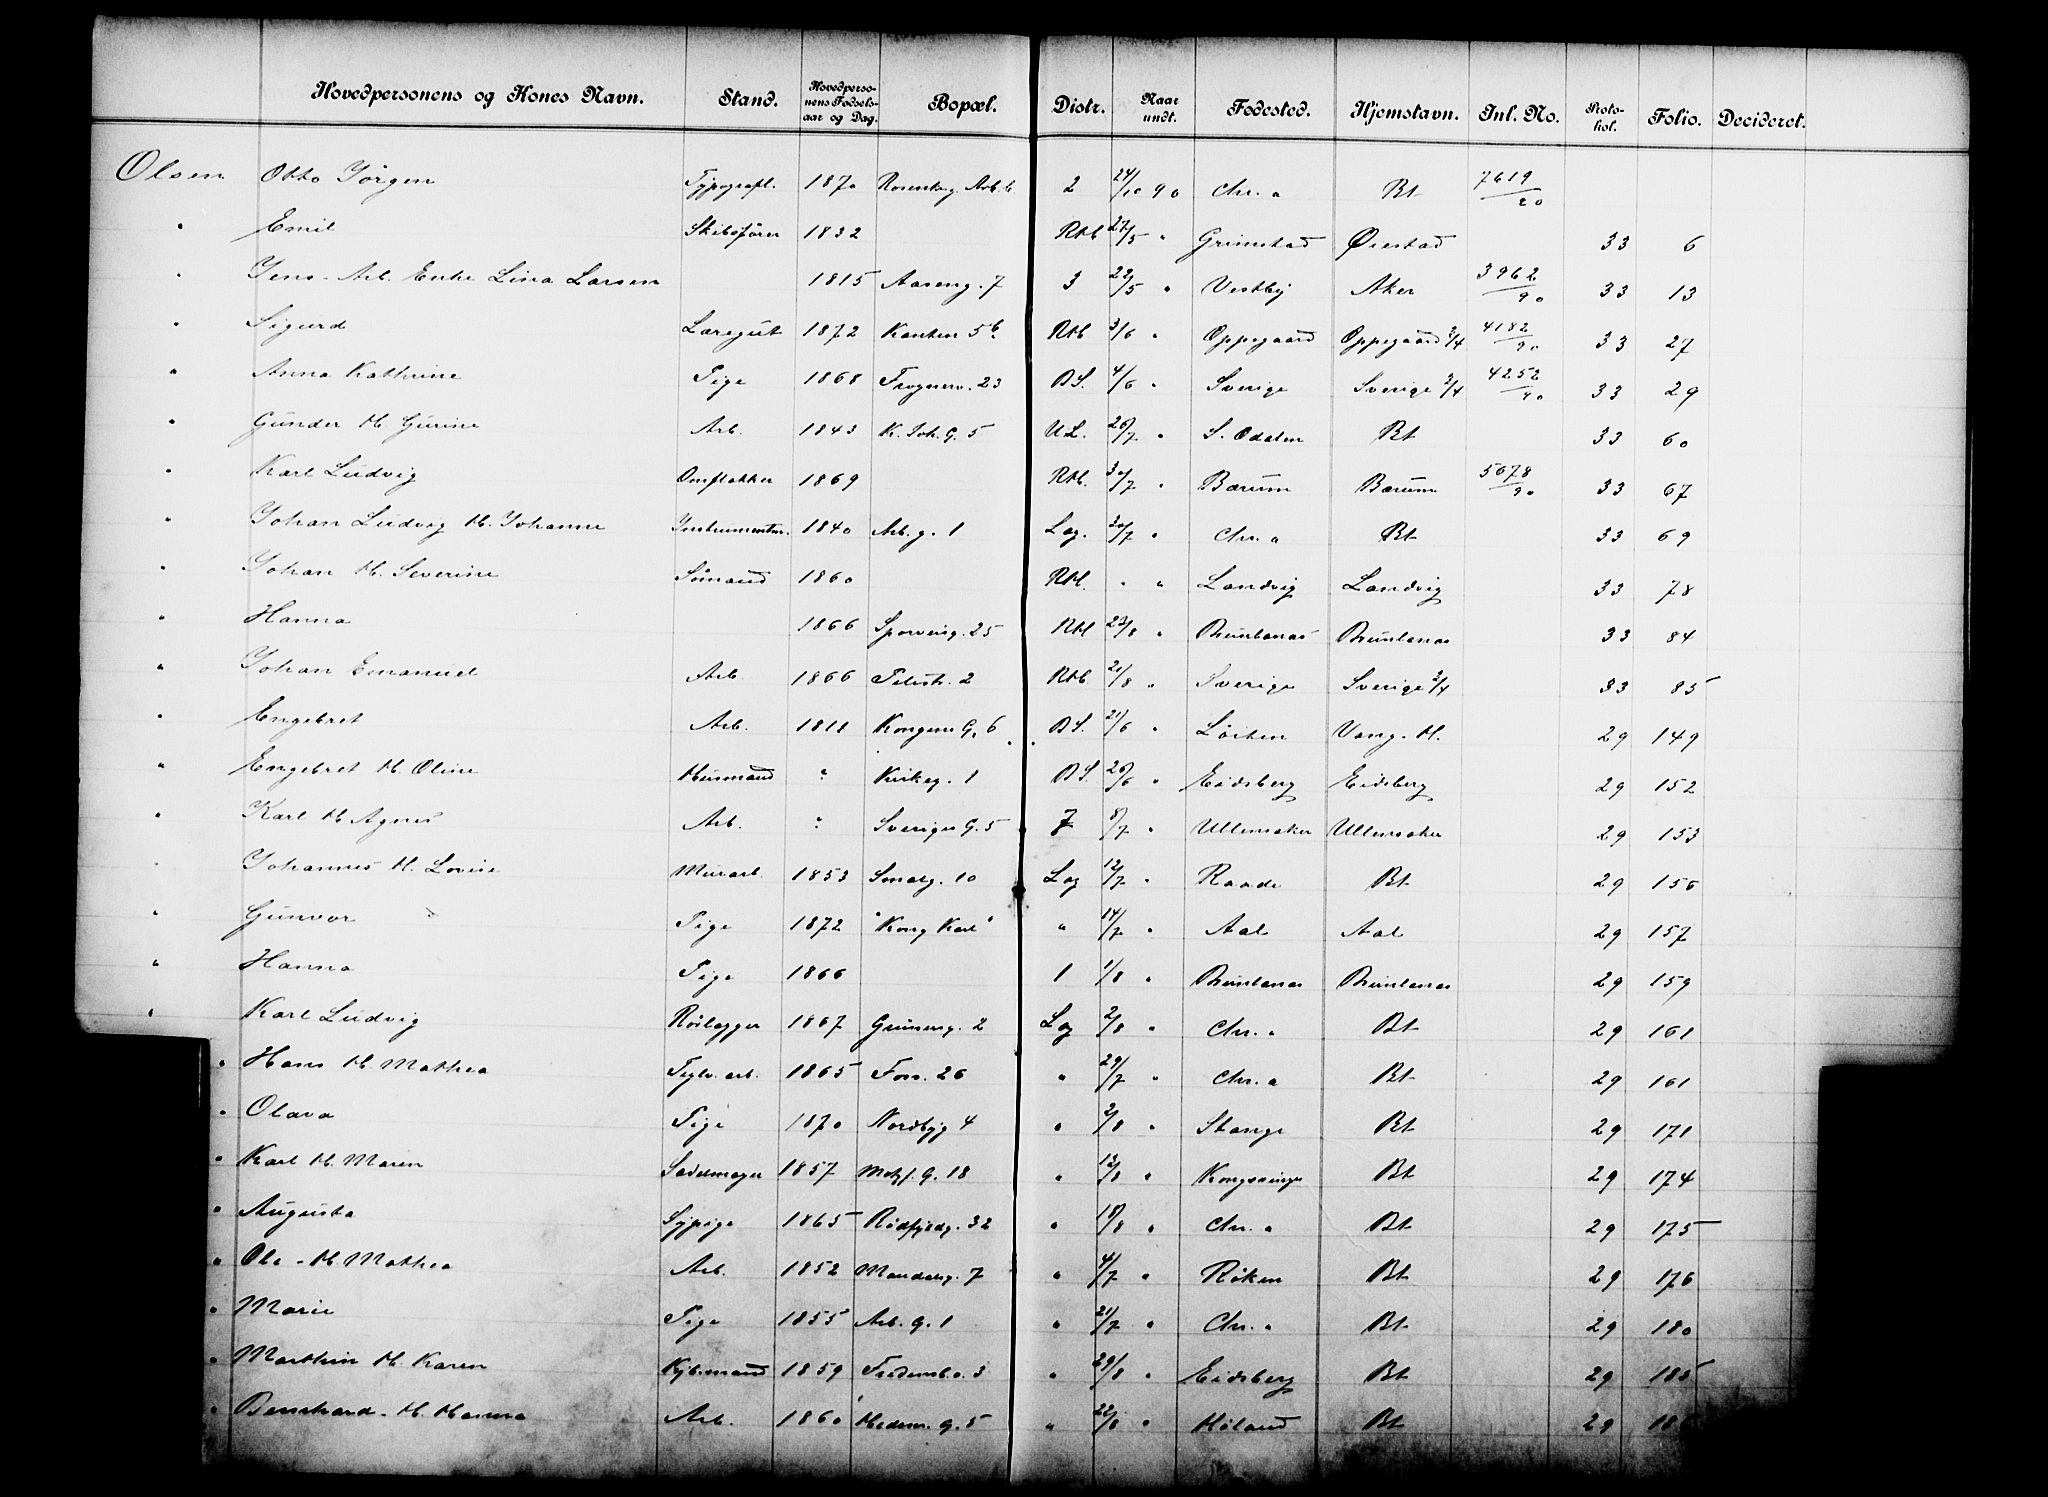 Hovedpersonens og Kones Navn. Stand. Hovedpersonens Fødselsaar og Dag. Bopæl. Distr. Naar undt. Fødested. Hjemstavn. Inl. No. Protokol. Folio. Decideret.
Olsen Otto Jörgen Typografl. 1870 Rosenkrg. Arb. b 2 24/10 90 Chr.a Bt 7619/90
" Emil Skibsfører 1832 Rkl 27/5 " Grimstad Øiestad 33 6
" Jens - Arb. Enke Lina Larsen 1815 Aaseng. 7 3 22/5 " Vestby Aker 3962/90 33 13
" Sigurd Læregut 1872 Kanten 5b Rkl 3/6 " Oppegaard Oppegaard 2/4 4182/90 33 27
" Anna Kathrine Pige 1868 Frognerv. 23 BS. 4/6 " Sverige Sverige 2/4 4252/90 33 29
" Gunder H. Gurine Arb. 1843 K. Joh. G. 5 UL. 26/7 " S. Odalen Bt 33 60
" Karl Ludvig Omflakker 1869 Rkl. 30/7 " Bærum Bærum 5678/90 33 67
" Johan Ludvig H. Johanne Instrumentm. 1840 Arb. g. 1 Lag. 30/7 " Chr.a Bt 33 69
" Johan H. Severine Sømand 1860 Rkl. " " Landvig Landvig 33 78
" Hanna 1866 Sporveisg. 25 Rkl 23/8 " Brunlanæs Brunlanæs 33 84
" Johan Emanuel Arb. 1866 Pilestr. 2 Rkl. 21/8 " Sverige Sverige 2/4 33 85
" Engebret Arb. 1811 Kongens G. 6 BS. 21/6 " Löiten Vang. H. 29 149
" Engebret H. Oline Husmand " Kirkeg. 1 BS. 26/6 " Eidsberg Eidsberg 29 152
" Karl H. Agnes Arb. " Sveriges G. 5 7 8/7 " Ullensaker Ullensaker 29 153
" Johannes H. Lovise Murarb. 1853 Smalg. 10 Lag 12/7 " Raade Bt 29 156
" Gunvor Pige 1872 "Kong Karl" " 14/7 " Aal Aal 29 157
" Hanna Pige 1866 1 1/8 " Brunlanæs Brunlanæs 29 159
" Karl Ludvig Rörlægger 1867 Grünerg. 2 Lag 2/8 " Chr.a Bt 29 161
" Hans H. Mathea Teglv. arb. 1865 Foss. 26 " 29/7 " Chr.a Bt 29 161
" Olava Pige 1870 Nordbyg 4 " 2/8 " Stange Bt 29 171
" Karl H. Maren Sadelmager 1857 Motzf. G. 18 " 12/8 " Kongsvinger Bt 29 174
" Augusta Sypige 1865 Rödfyldg. 32 " 18/8 " Chr.a Bt 29 175
" Ole - H. Mathea Arb. 1852 Mandalsg. 7 " 4/7 " Røken Bt 29 176
" Marie Pige 1855 Arb. G. 1 " 21/7 " Chr.a Bt 29 180
" Marthin H. Karen Kjbsmand 1859 3 " 29/8 " Eidsberg Bt 29 185
" Bernhard - H. Hanna Arb. 1860 Hedem. G. 5 " 22/8 " Høland Bt 29